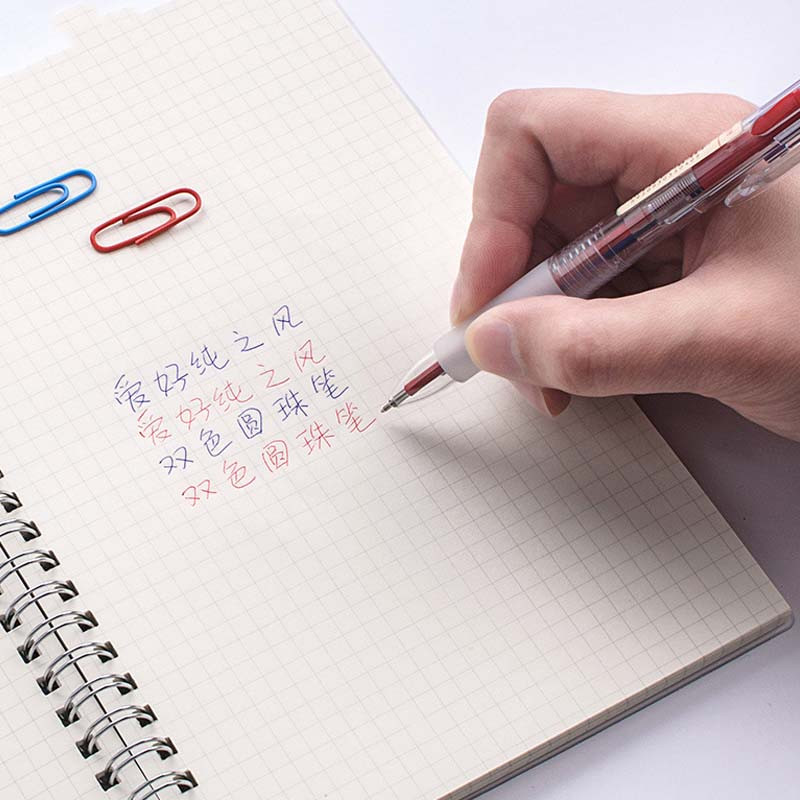 爱好纯之风
爱好纯之风
双色圆珠笔
双色圆珠笔